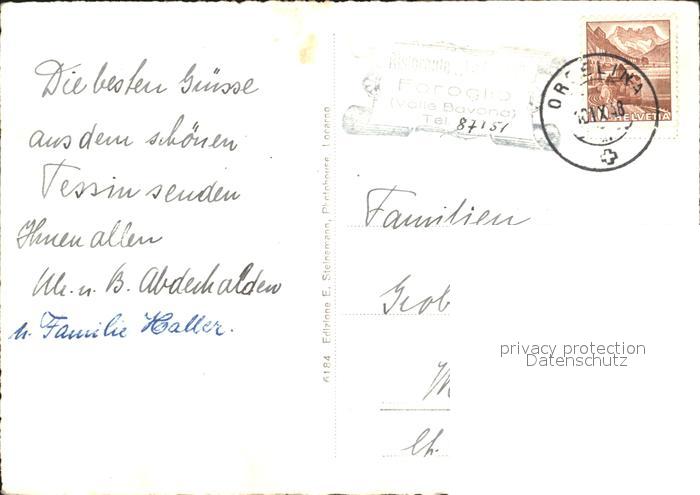 Die besten Grüsse
aus dem schönen
Tessin senden
Ihnen allen
u. B. Abderhalden
u. Familie Haller.
6184 Edizione E. Steinemann, Photohouse, Locarno
Ristorante
Foroglio
(Valle Bavona)
Tel. 87151
ORSELINA
HELVETIA
Familien
Grob
M
Ch.
privacy protection
Datenschutz